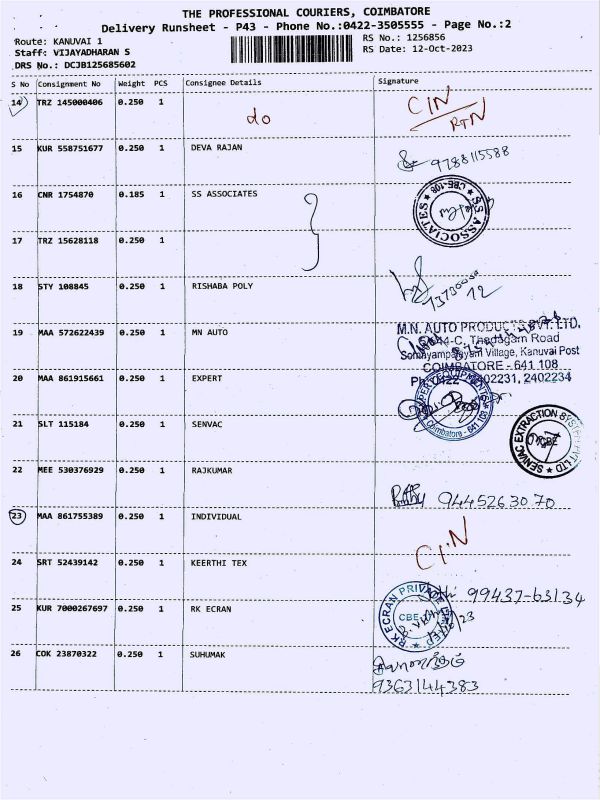 THE PROFESSIONAL COURIERS, COIMBATORE
Delivery Runsheet - P43 - Phone No.:0422-3505555 - Page No.:2
Route: KANUVAI 1
Staff: VIJAYADHARAN S
DRS No.: DCJB125685602
RS No.: 1256856
RS Date: 12-Oct-2023
S No Consignment No Weight PCS Consignee Details Signature
14 TRZ 145000406 0.250 1 do CIN/RTN
15 KUR 558751677 0.250 1 DEVA RAJAN 9788115588
16 CNR 1754870 0.185 1 SS ASSOCIATES SS ASSOCIATES ★ CBE-108 ★
17 TRZ 15628118 0.250 1
18 STY 108845 0.250 1 RISHABA POLY
19 MAA 572622439 1 MN AUTO
M.N. AUTO PRODUCTS PVT. LTD.
Thadagam Road
Somayampalayam Village, Kanuvai Post
COIMBATORE - 641 108
2402231, 2402234
20 MAA 861915661 0.250 1 EXPERT Coimbatore - 641 108
21 SLT 115184 0.250 1 SENVAC SENVAC EXTRACTION SYSTEM PVT LTD ★ CBE
22 MEE 530376929 0.250 1 RAJKUMAR 9445263070
23 MAA 861755389 0.250 1 INDIVIDUAL CIN
24 SRT 52439142 0.250 1 KEERTHI TEX 99437-63134
25 KUR 7000267697 0.250 1 RK ECRAN RK ECRAN PRIVATE LIMITED CBE
26 COK 23870322 0.250 1 SUHUMAK
9363144383